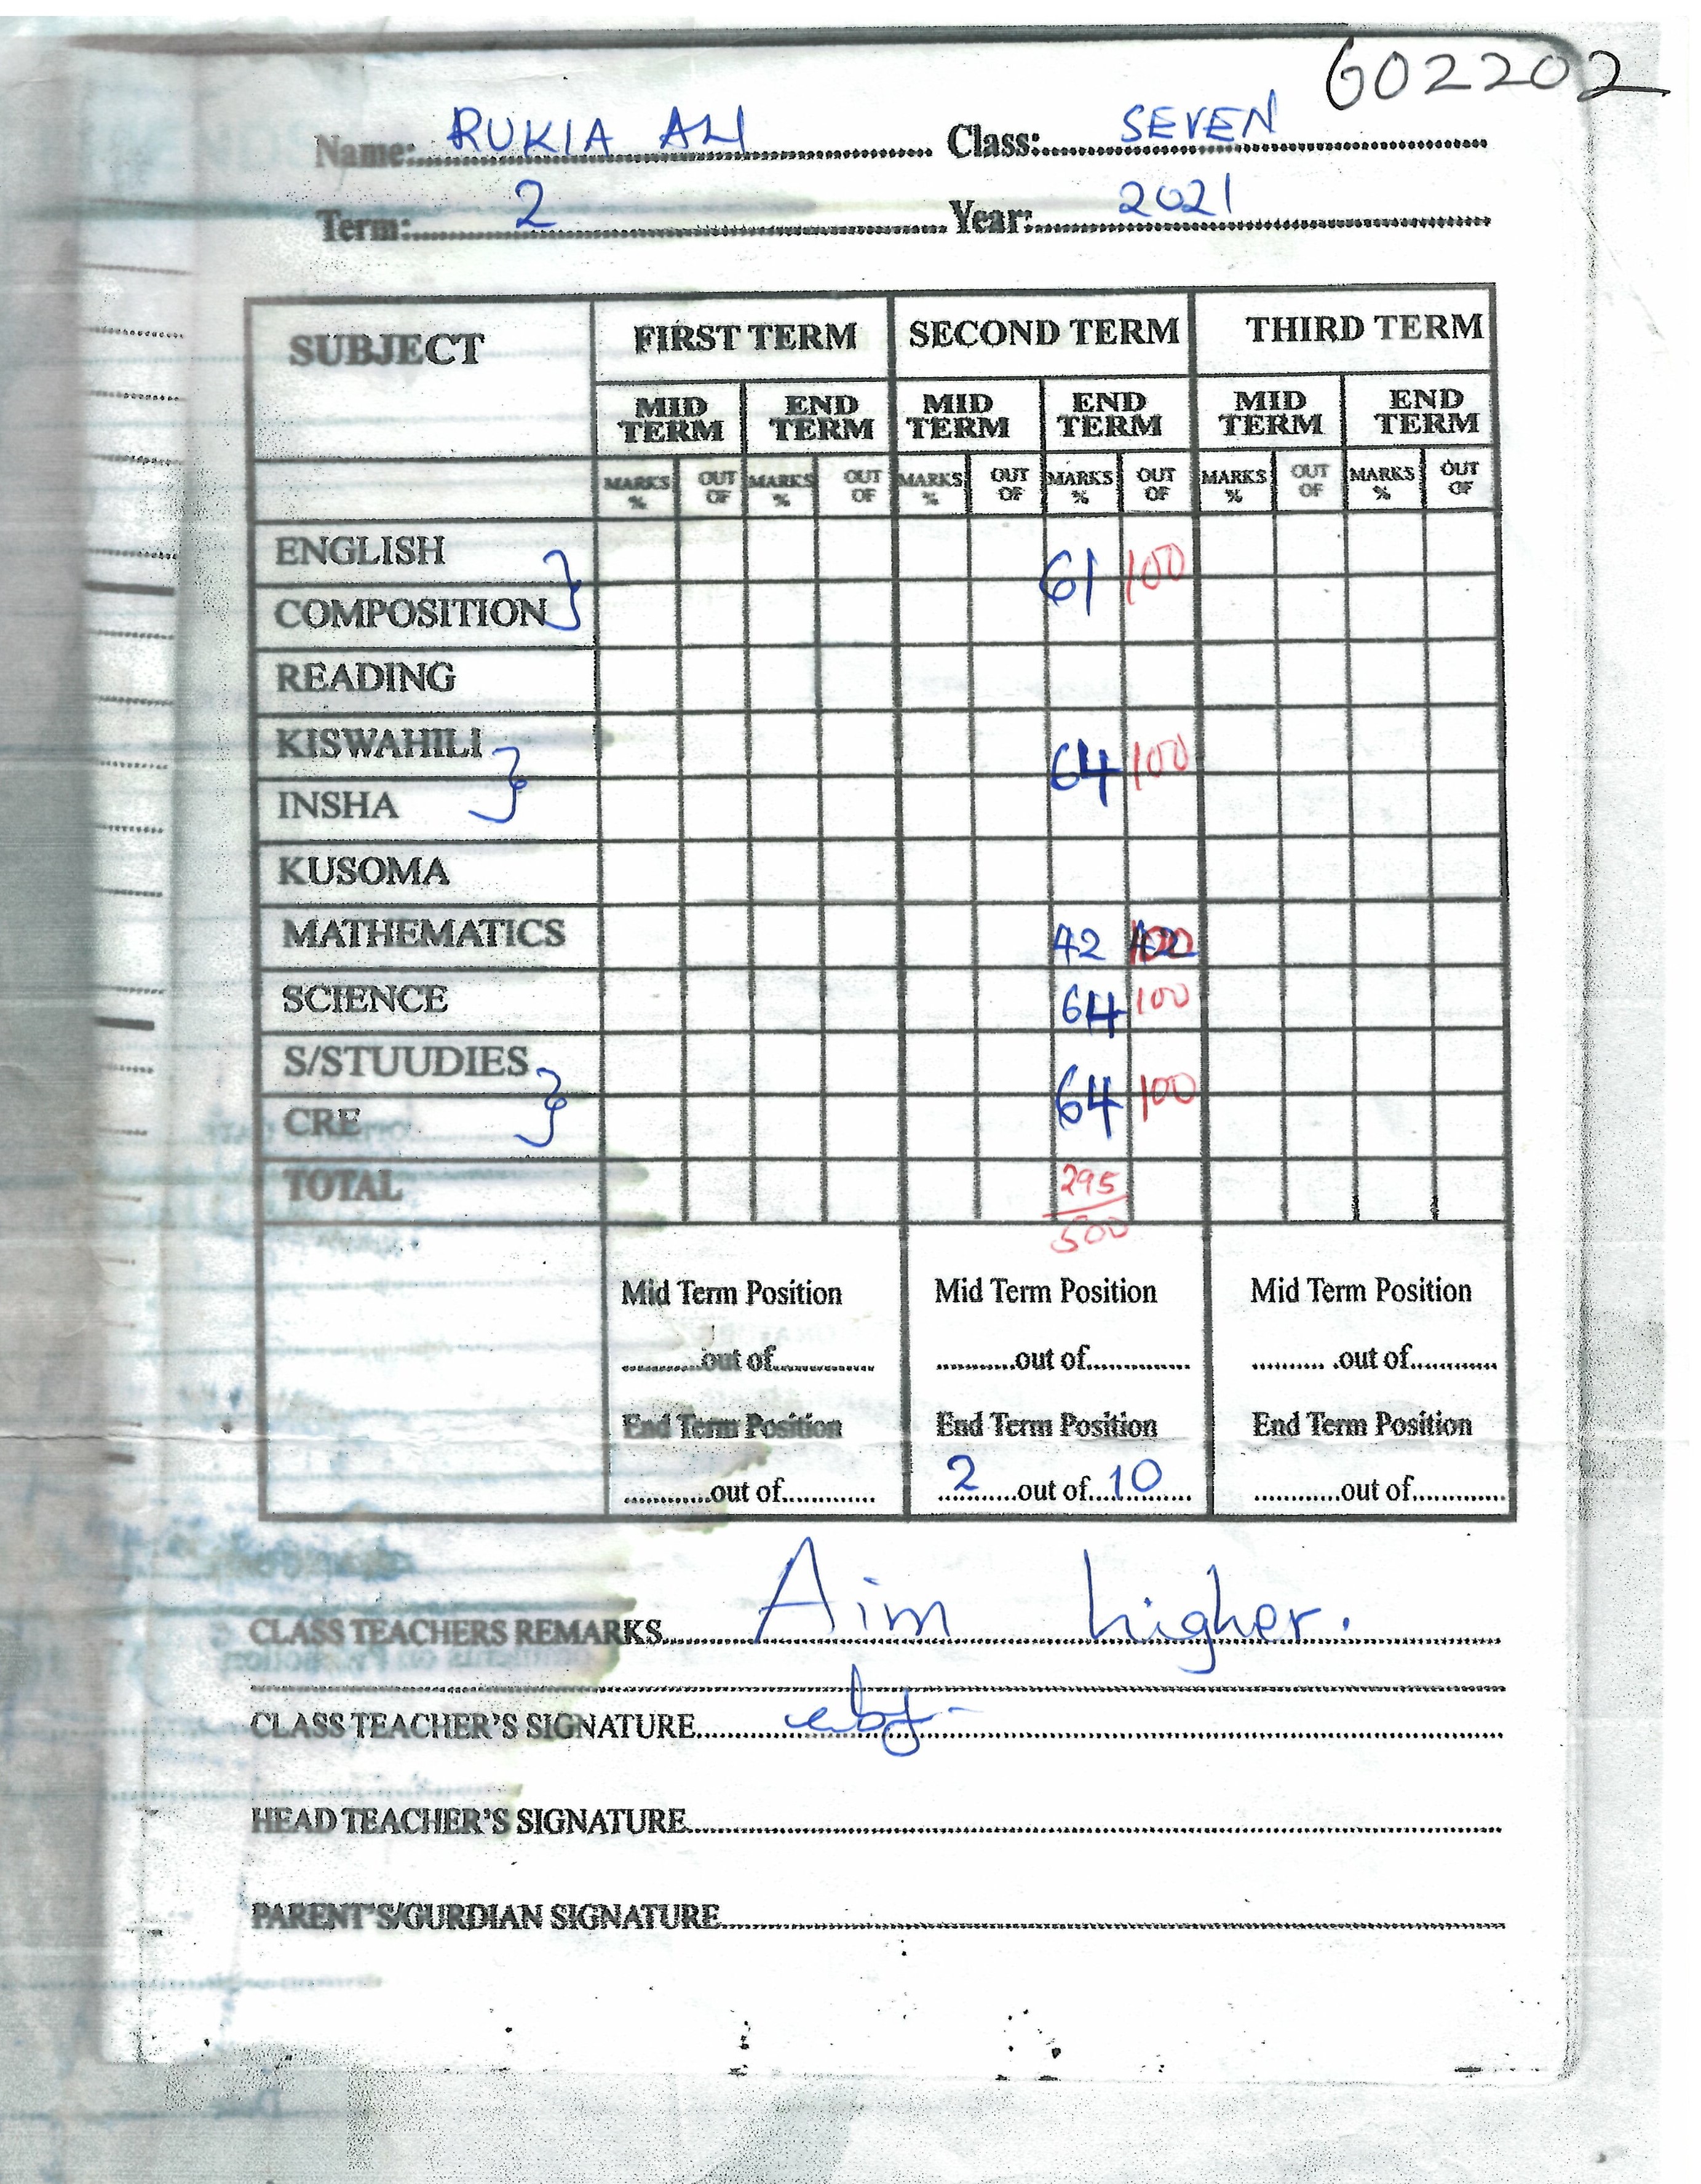 602202
Name: RUKIA ALI Class: SEVEN
Term: 2 Year: 2021
SUBJECT FIRST TERM SECOND TERM THIRD TERM
MID TERM END TERM MID TERM END TERM MID TERM END TERM
MARKS % OUT OF MARKS % OUT OF MARKS % OUT OF MARKS % OUT OF MARKS % OUT OF MARKS % OUT OF
ENGLISH } 61 100
COMPOSITION
READING
KISWAHILI } 64 100
INSHA
KUSOMA
MATHEMATICS 42 100
SCIENCE 64 100
S/STUUDIES } 64 100
CRE
TOTAL 295
500
Mid Term Position Mid Term Position Mid Term Position
............out of............ ............out of............ ............out of............
End Term Position End Term Position End Term Position
............out of............ 2 out of 10 ............out of............
CLASS TEACHERS REMARKS Aim higher.
CLASS TEACHER'S SIGNATURE
HEAD TEACHER'S SIGNATURE
PARENT'S/GURDIAN SIGNATURE